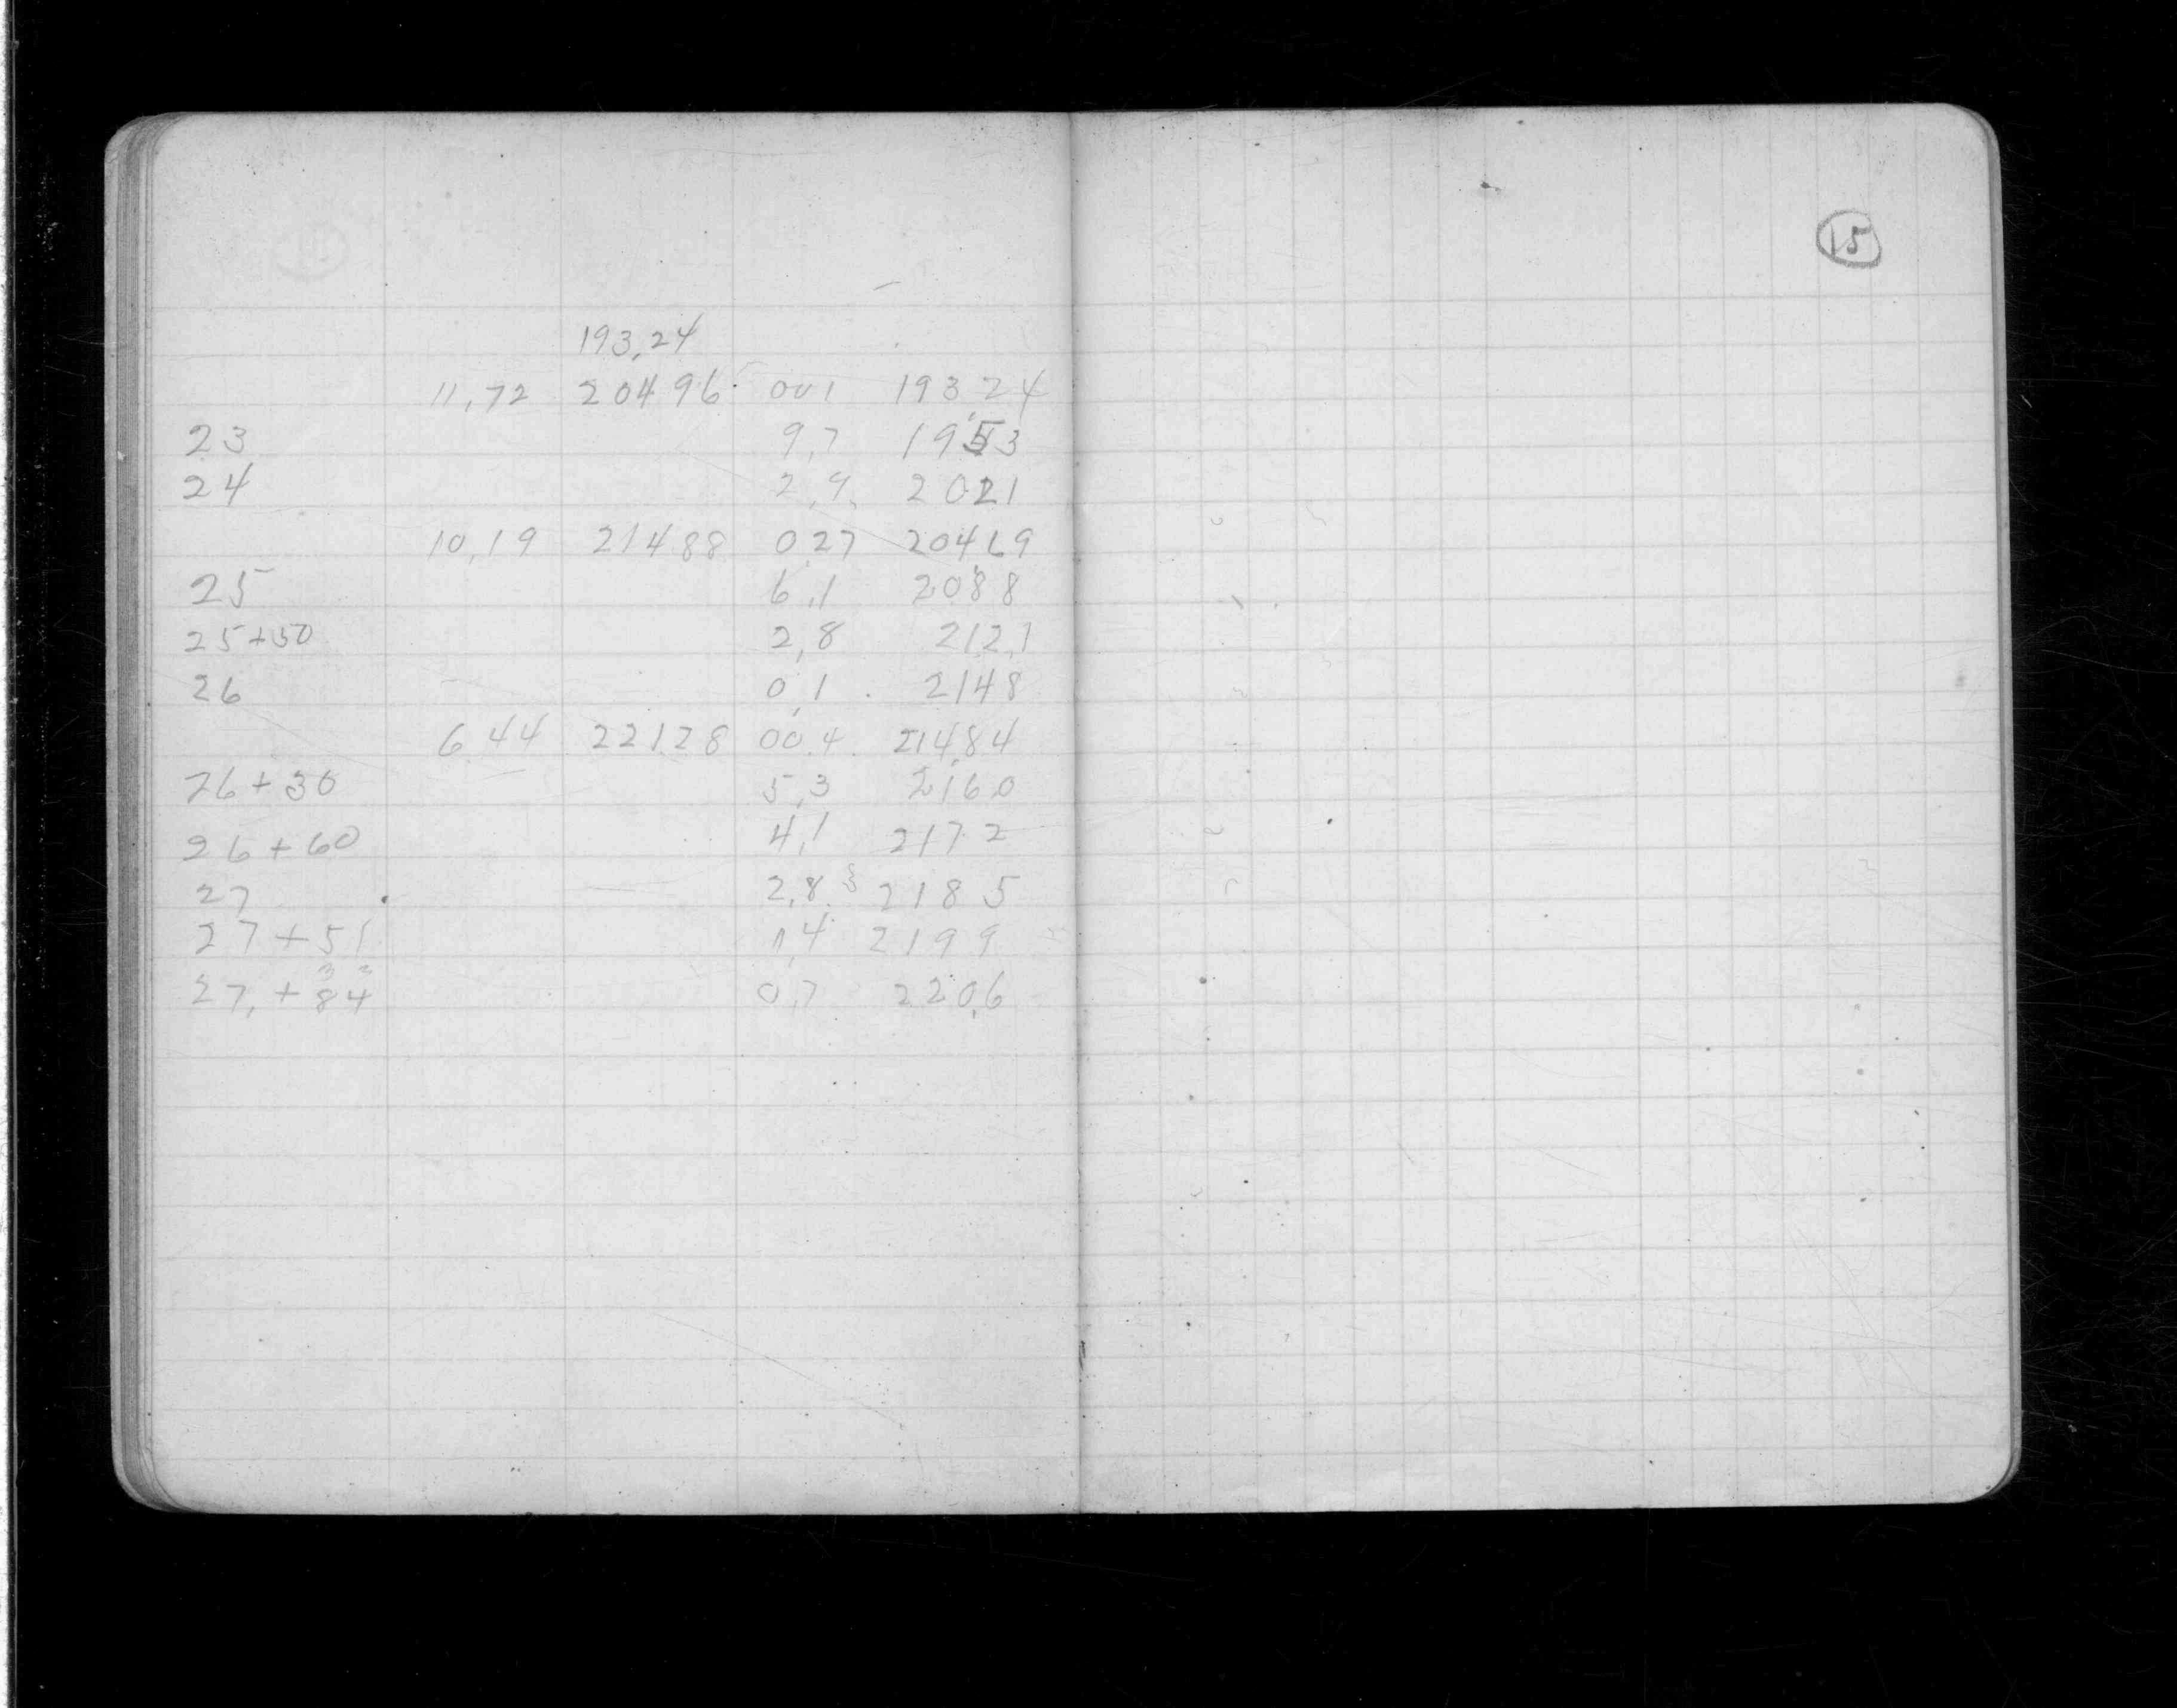 15
193,24
11,72 20496 001 19324
23 9,7 1953
24 2,9 2021
10,19 21488 0,27 20469
25 6,1 2088
25+50 2,8 212,1
26 0,1 2148
6 44 22128 00,4 214,84
26+30 5,3 2160
26+60 4,1 2172
27 2,8 2185
27+51 1,4 2199
27,+84 0,7 220,6